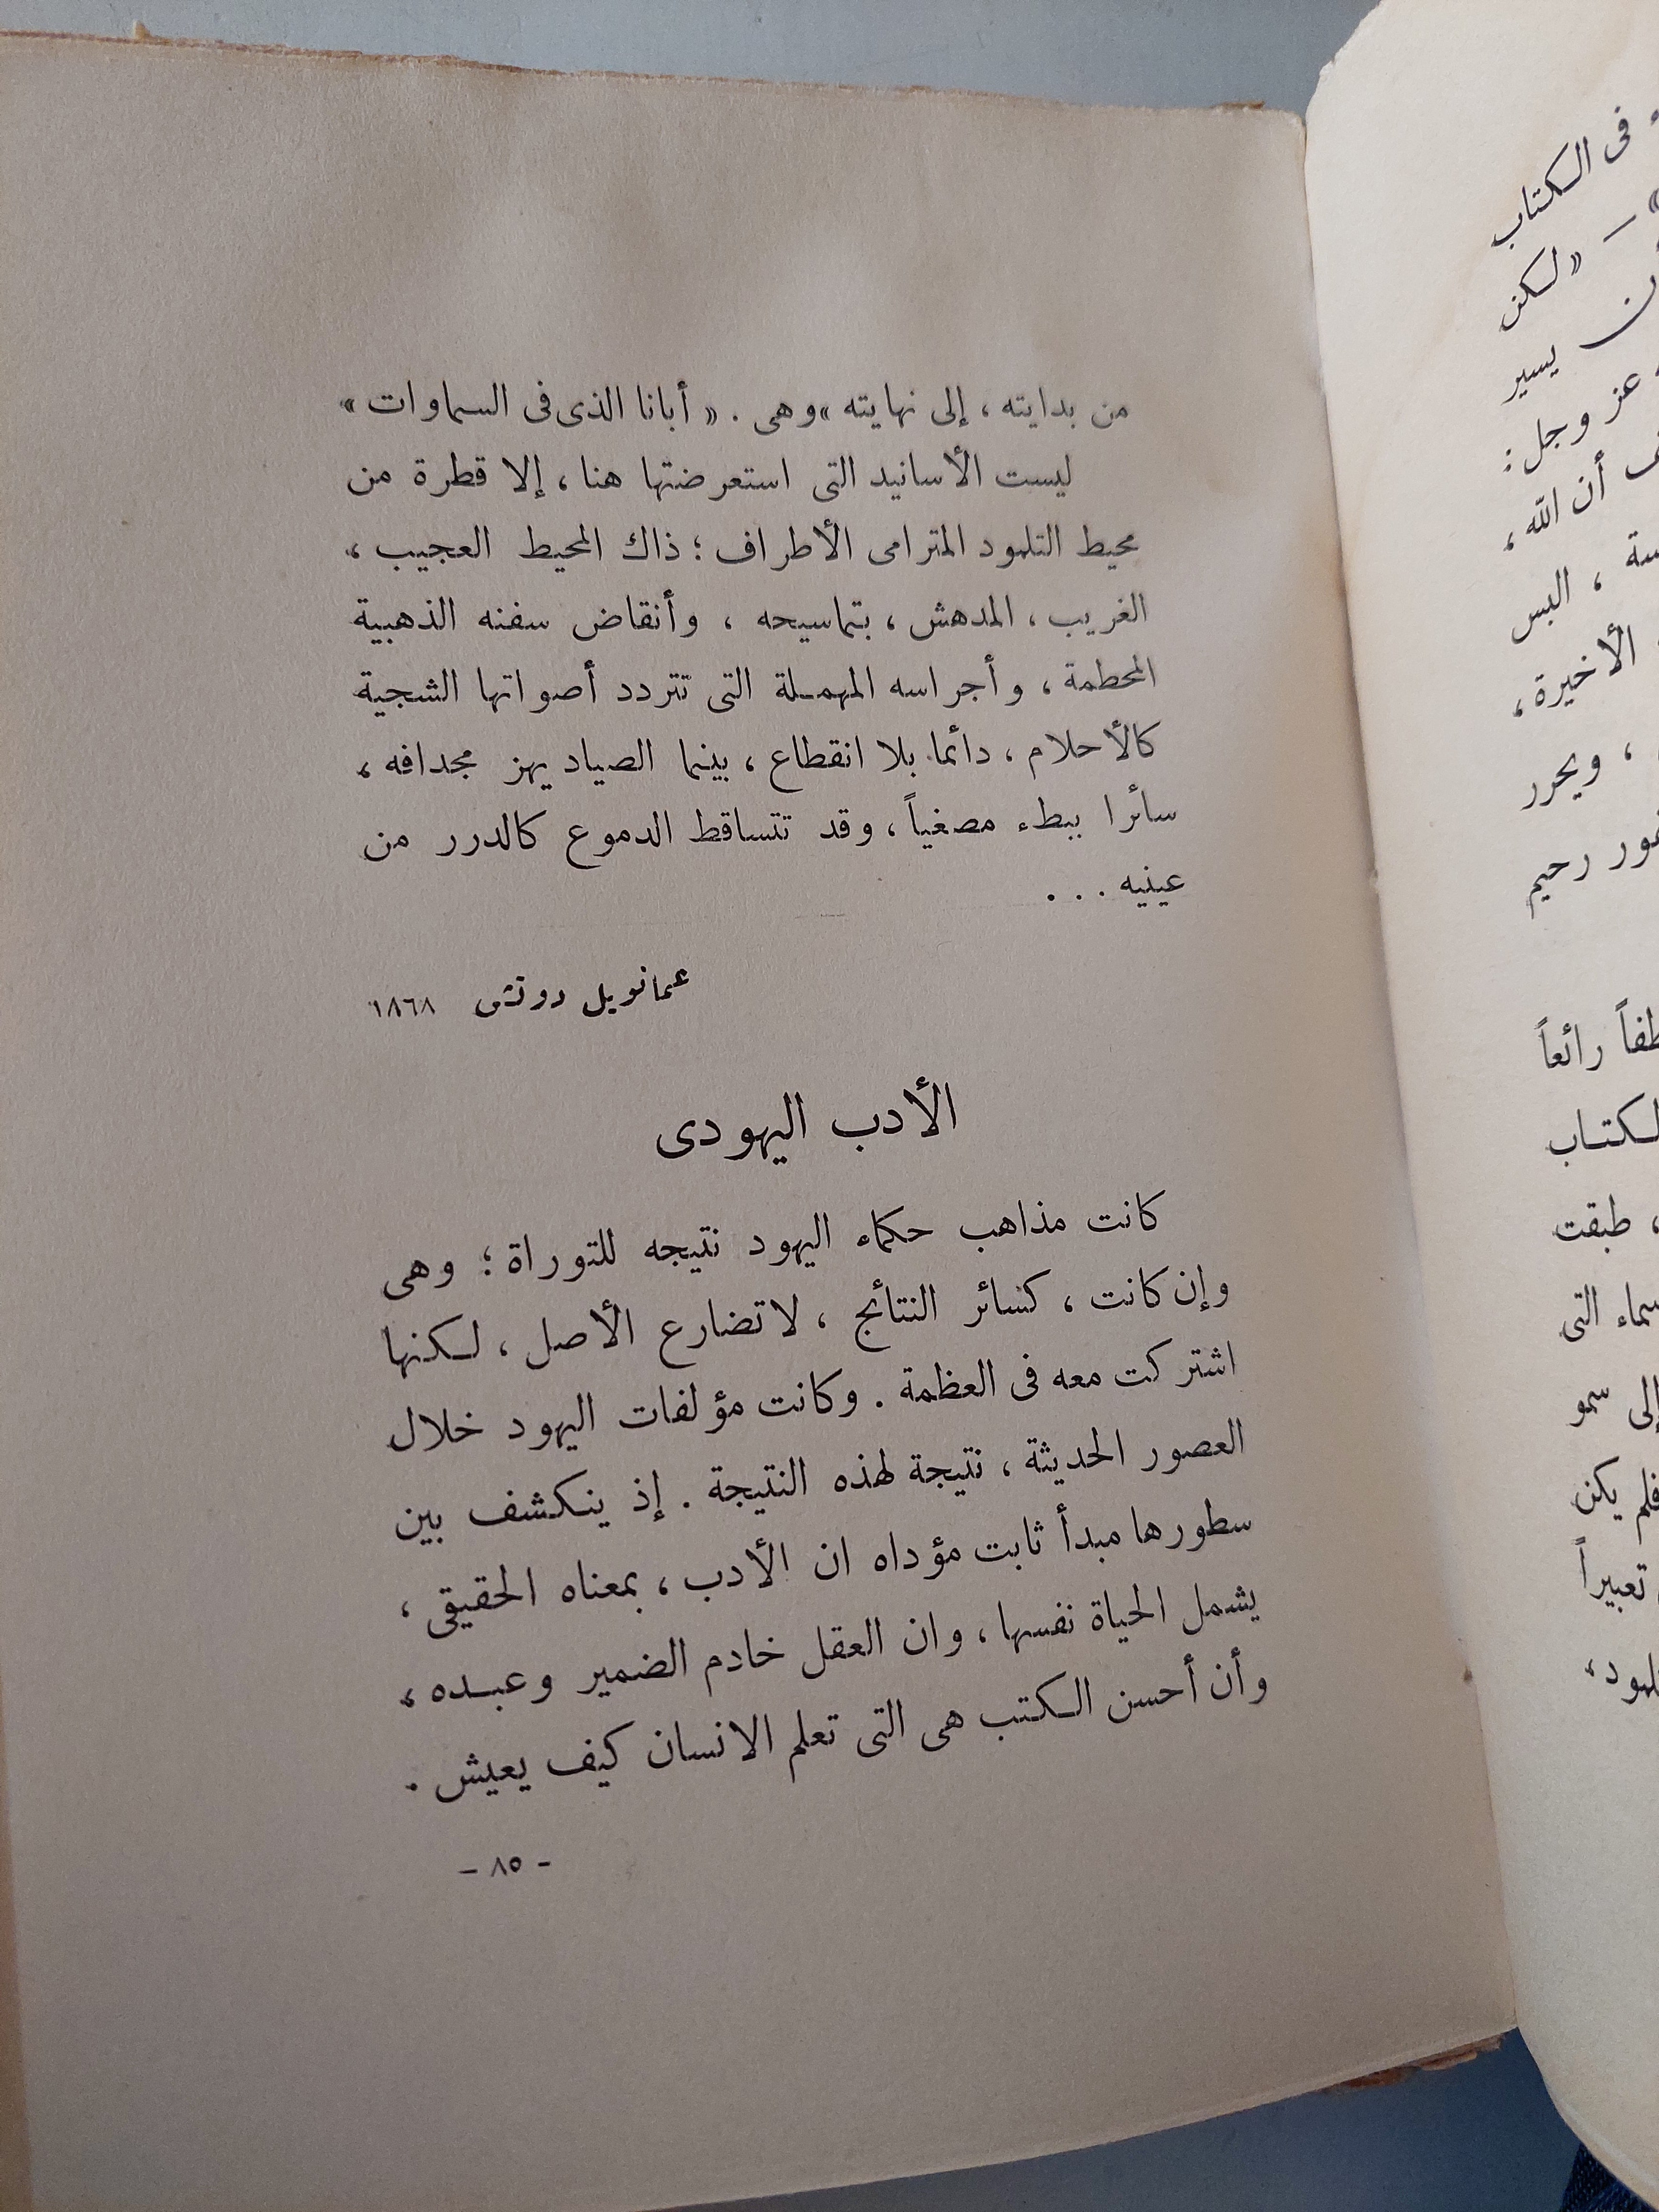 من بدايته ، إلى نهايته » وهى . « أبانا الذى فى السماوات »
ليست الأسانيد التى استعرضتها هنا ، إلا قطرة من
محيط التلمود المترامى الأطراف ؛ ذاك المحيط العجيب ،
الغريب ، المدهش ، بتماسيحه ، وأنقاض سفنه الذهبية
المحطمة ، وأجراسه المهملة التى تتردد أصواتها الشجية
كالأحلام ، دائما بلا انقطاع ، بينما الصياد يهز مجدافه ،
سائرا ببطء مصغياً ، وقد تتساقط الدموع كالدرر من
عينيه . . .
عمانويل دوتش ١٨٦٨
الأدب اليهودى
كانت مذاهب حكماء اليهود نتيجه للتوراة ؛ وهى
وإن كانت ، كسائر النتائج ، لاتضارع الأصل ، لكنها
اشتركت معه فى العظمة . وكانت مؤلفات اليهود خلال
العصور الحديثة ، نتيجة لهذه النتيجة . إذ ينكشف بين
سطورها مبدأ ثابت مؤداه ان الأدب ، بمعناه الحقيقى ،
يشمل الحياة نفسها ، وان العقل خادم الضمير وعبده ،
وأن أحسن الكتب هى التى تعلم الانسان كيف يعيش .
- ٨٥ -
فى الكتاب
— « لكن
يسير
عز وجل :
أن الله ،
، البس
الأخيرة ،
، ويحرر
رحيم
رائعاً
الكتاب
، طبقت
التى
إلى سمو
فلم يكن
تعبيراً